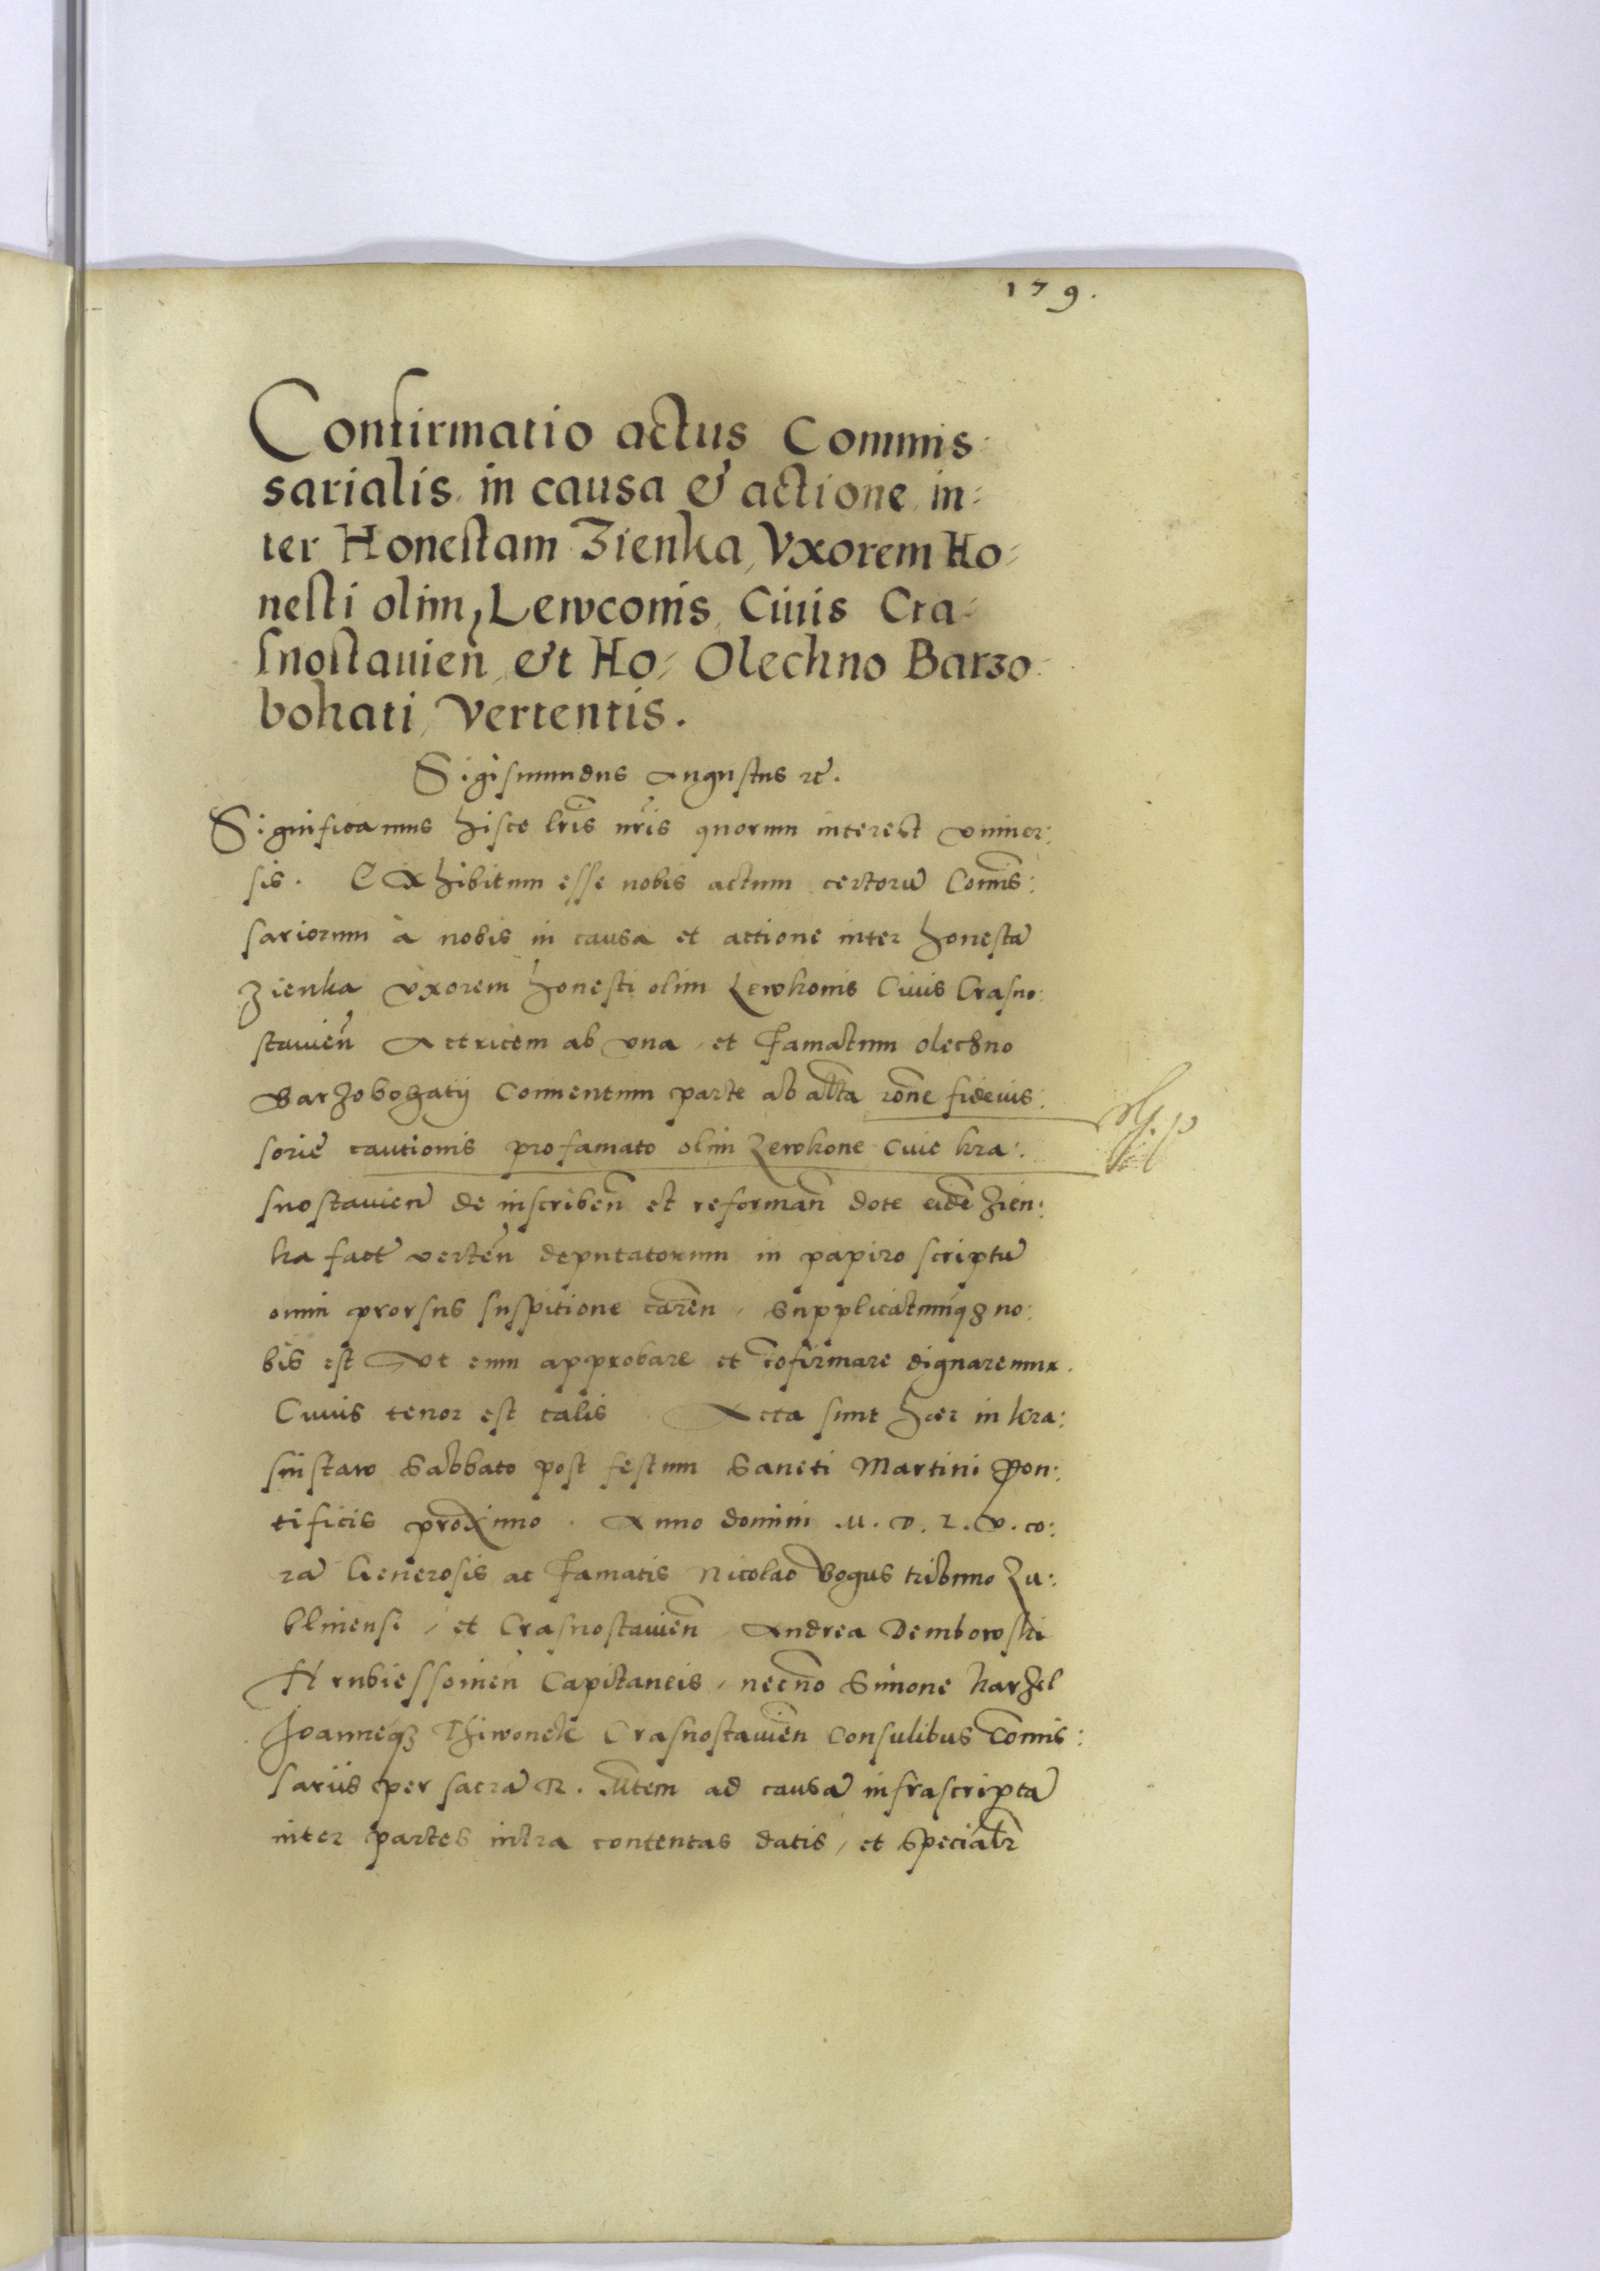 179.
Confirmatio actus Commis:
sarialis, in causa & actione in:
ter Honestam Zienka, Vxorem Ho:
nesti olim, Lewconis, Ciuis Cra:
snostauien̄, et Ho: Olechno Barzo:
bohati, Vertentis.
Sigismundus Augustus rc̄.
Significamus hisce lr̄is nr̄is quorum interest vniuer:
sis. Exhibitum esse nobis actum certorū Com̄is:
sariorum à nobis in causa et actione inter honestā
Zienka vxorem honesti olim Lewkonis Ciuis Crasno:
stauien̄ Actricem ab vna, et famatum olechno
Barzobohatij Conuentum parte ab alt̄a rōne fideius:
sorie cautionis pro famato olim Lewkone Ciue kra:
snostauien̄ de inscriben̄ et reforman̄ dote eidē Zien:
ka fact̄ verten̄ deputatorum in papiro scriptū
omni prorsus suspitione caren̄, Supplicatumqȝ no:
bis est Vt eum approbare et cōfirmare dignaremur.
Cuius tenor est talis. Acta sunt haec in kra:
snistaw Sabbato post festum Sancti Martini Pon:
tificis proximo. Anno domini .M.D.L.V. co:
rā Generosis ac famatis Nicolao Bogus tribuno Lu:
blinensi, et Crasnostauien̄, Andrea Dembowski
Hrubiessouien̄ Capitaneis, necn̄o Simone karzel
Joanneqȝ Thiwonek Crasnostauien̄ Consulibus Com̄is:
sariis per sacrā R. M̄tem ad causā infrascriptā
inter partes intra contentas datis, et Specialr̄